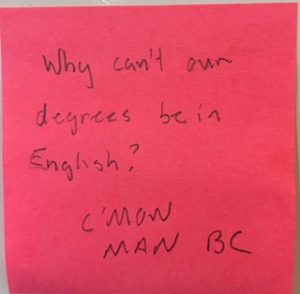 Why can't our
degrees be in
English?
C'MON
MAN BC